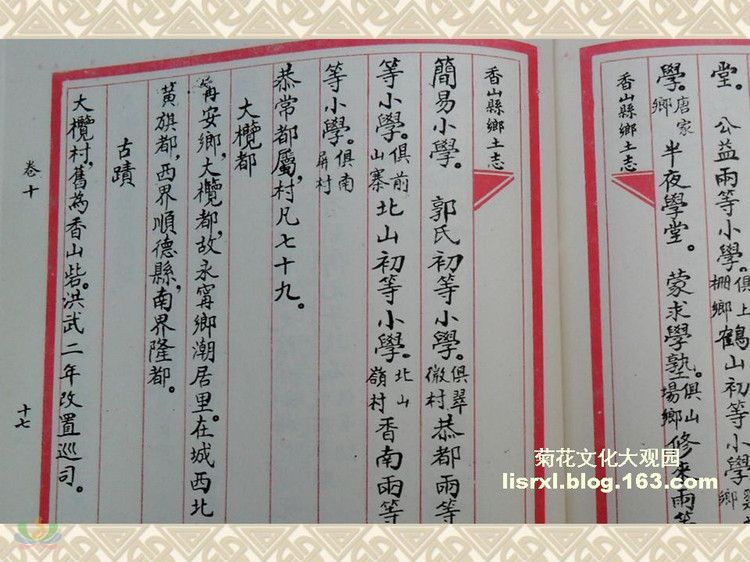 堂。公益兩等小學。俱上柵鄉鶴山初等小學
學。唐家鄉半夜學堂。蒙求學塾。俱山場鄉修來兩等
香山縣鄉土志
香山縣鄉土志
簡易小學。郭氏初等小學。俱翠微村恭都兩等
等小學。俱前山寨北山初等小學。北山嶺村香南兩等
等小學。俱南屏村
恭常都屬,村凡七十九。
大欖都
甯安鄉,大欖都,故永甯鄉潮居里。在城西北
黃旗都,西界順德縣,南界隆都。
古蹟
大欖村,舊為香山砦。洪武二年改置巡司。
卷十
十七
菊花文化大观园
lisrxl.blog.163.com